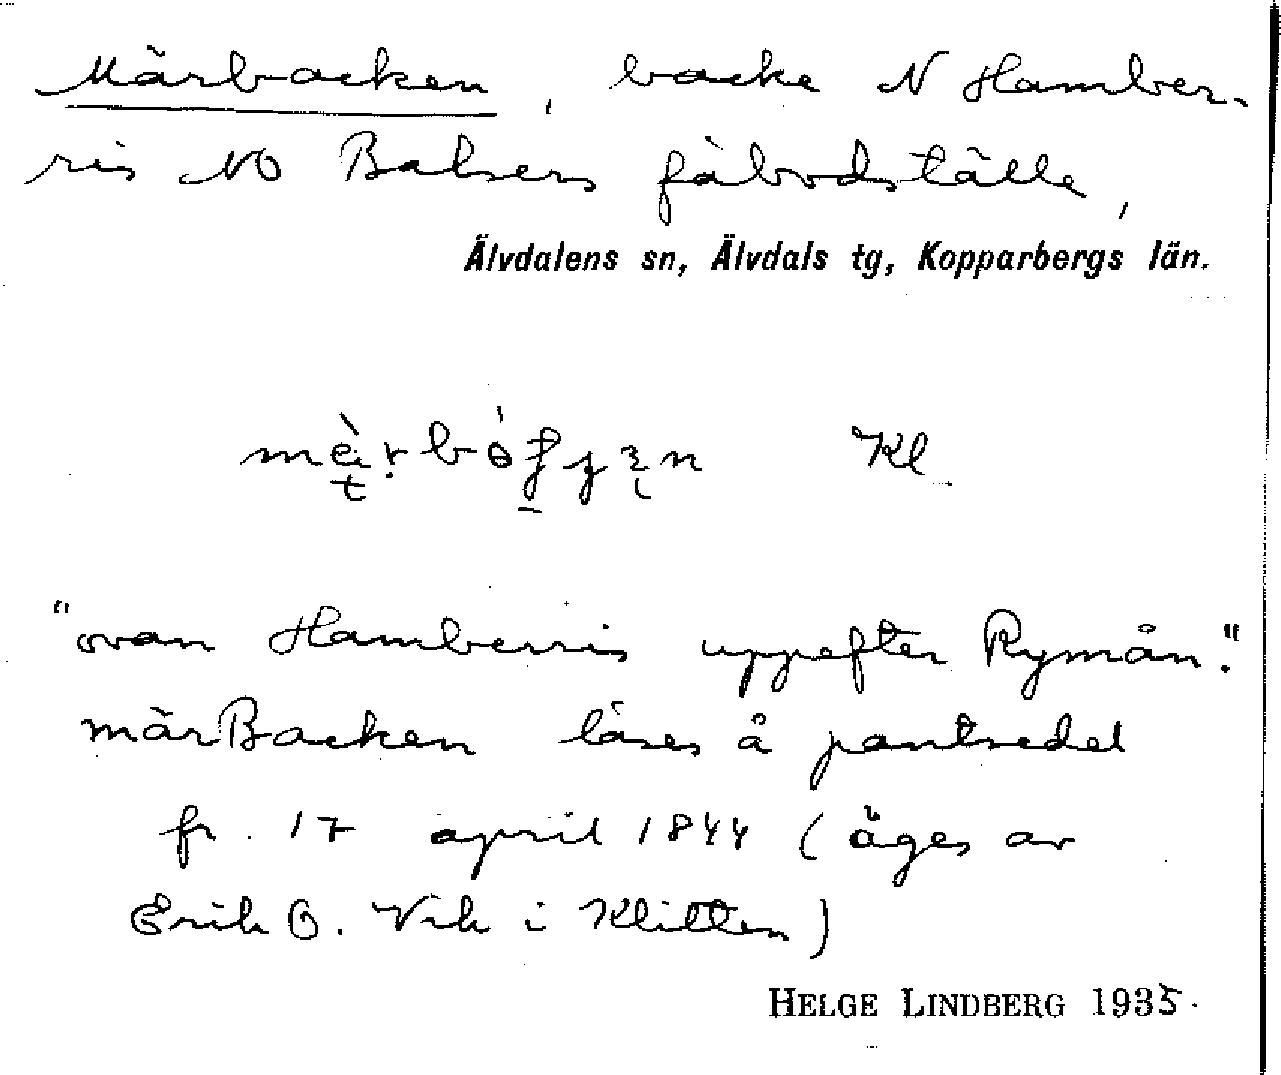 Märbacken, backe N Hamber-
ris NO Balsers fäbodställe,
Älvdalens sn, Älvdals tg, Kopparbergs län.
Kl
"ovan Hamberris uppefter Rymån."
märBacken läses å pantsedel
fr. 17 april 1844 (äges av
Erik O. Vik i Klitten)
HELGE LINDBERG 1935.